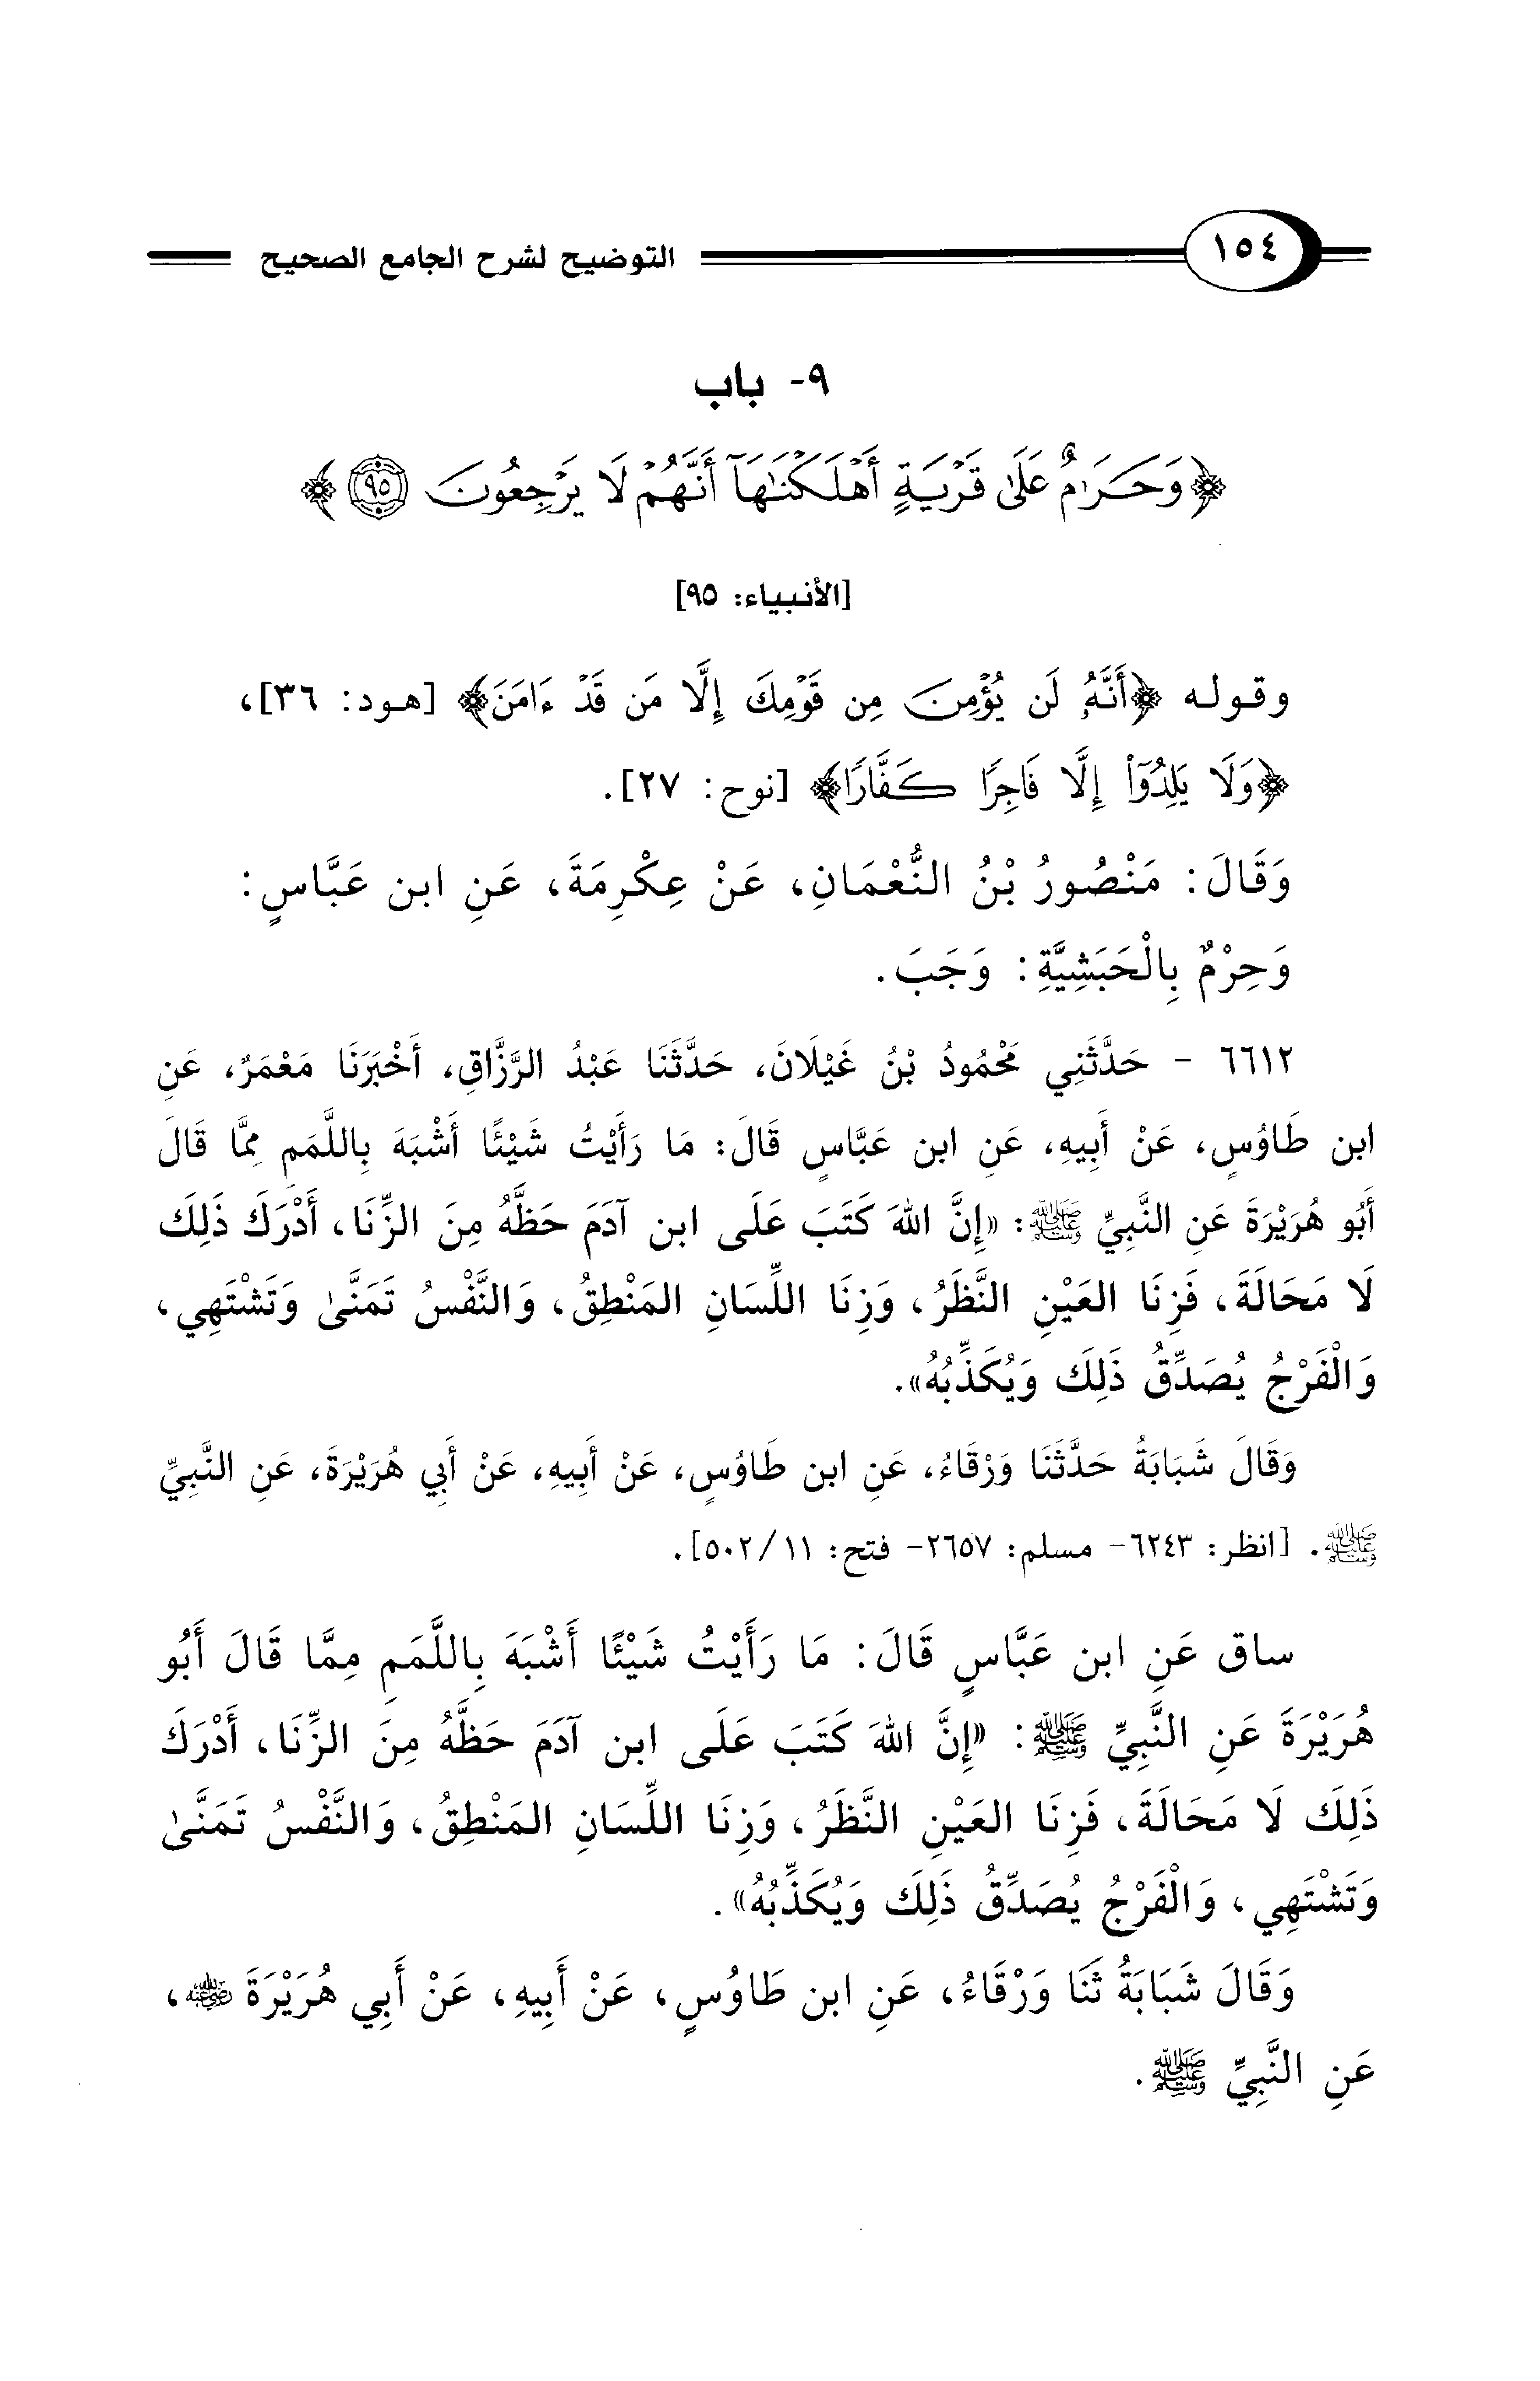 ١٥٤ التوضيح لشرح الجامع الصحيح
٩- باب
﴿وَحَرَٰمٌ عَلَىٰ قَرْيَةٍ أَهْلَكْنَٰهَآ أَنَّهُمْ لَا يَرْجِعُونَ ٩٥﴾
[الأنبياء: ٩٥]
وقوله ﴿أَنَّهُۥ لَن يُؤْمِنَ مِن قَوْمِكَ إِلَّا مَن قَدْ ءَامَنَ﴾ [هود: ٣٦]،
﴿وَلَا يَلِدُوٓا۟ إِلَّا فَاجِرًا كَفَّارًا﴾ [نوح: ٢٧].
وَقَالَ: مَنْصُورُ بْنُ النُّعْمَانِ، عَنْ عِكْرِمَةَ، عَنِ ابن عَبَّاسٍ:
وَحِرْمٌ بِالْحَبَشِيَّةِ: وَجَبَ.
٦٦١٢ - حَدَّثَنِي مَحْمُودُ بْنُ غَيْلَانَ، حَدَّثَنَا عَبْدُ الرَّزَّاقِ، أَخْبَرَنَا مَعْمَرٌ، عَنِ
ابن طَاوُسٍ، عَنْ أَبِيهِ، عَنِ ابن عَبَّاسٍ قَالَ: مَا رَأَيْتُ شَيْئًا أَشْبَهَ بِاللَّمَمِ مِمَّا قَالَ
أَبُو هُرَيْرَةَ عَنِ النَّبِيِّ ﷺ: «إِنَّ اللهَ كَتَبَ عَلَى ابن آدَمَ حَظَّهُ مِنَ الزِّنَا، أَدْرَكَ ذَلِكَ
لَا مَحَالَةَ، فَزِنَا العَيْنِ النَّظَرُ، وَزِنَا اللِّسَانِ المَنْطِقُ، وَالنَّفْسُ تَمَنَّىٰ وَتَشْتَهِي،
وَالْفَرْجُ يُصَدِّقُ ذَلِكَ وَيُكَذِّبُهُ».
وَقَالَ شَبَابَةُ حَدَّثَنَا وَرْقَاءُ، عَنِ ابن طَاوُسٍ، عَنْ أَبِيهِ، عَنْ أَبِي هُرَيْرَةَ، عَنِ النَّبِيِّ
ﷺ. [انظر: ٦٢٤٣- مسلم: ٢٦٥٧- فتح: ١١/ ٥٠٢].
ساق عَنِ ابن عَبَّاسٍ قَالَ: مَا رَأَيْتُ شَيْئًا أَشْبَهَ بِاللَّمَمِ مِمَّا قَالَ أَبُو
هُرَيْرَةَ عَنِ النَّبِيِّ ﷺ: «إِنَّ اللهَ كَتَبَ عَلَى ابن آدَمَ حَظَّهُ مِنَ الزِّنَا، أَدْرَكَ
ذَلِكَ لَا مَحَالَةَ، فَزِنَا العَيْنِ النَّظَرُ، وَزِنَا اللِّسَانِ المَنْطِقُ، وَالنَّفْسُ تَمَنَّىٰ
وَتَشْتَهِي، وَالْفَرْجُ يُصَدِّقُ ذَلِكَ وَيُكَذِّبُهُ».
وَقَالَ شَبَابَةُ ثَنَا وَرْقَاءُ، عَنِ ابن طَاوُسٍ، عَنْ أَبِيهِ، عَنْ أَبِي هُرَيْرَةَ رضي الله عنه،
عَنِ النَّبِيِّ ﷺ.